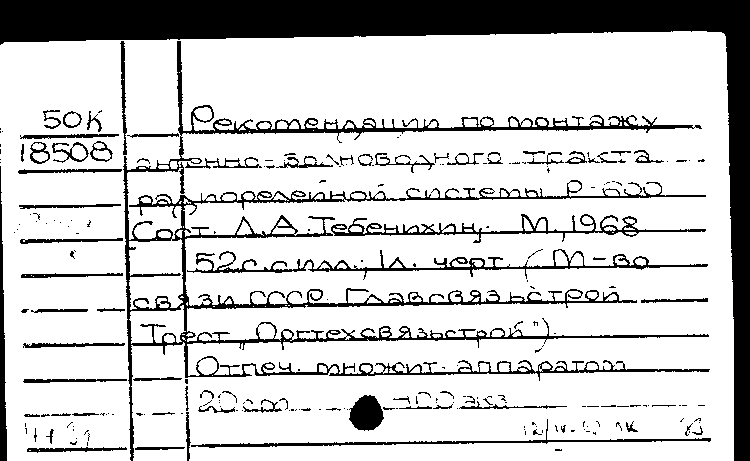 50К Рекомендации по монтажу
18508 антенно-волноводного тракта
радиорелейной системы Р-600
Сост. Л.А.Тебенихин. М., 1968
52с.с илл.; 1л. черт. (М-во
связи СССР. Главсвязьстрой
Трест "Оргтехсвязьстрой").
Отпеч. множит. аппаратом
20cm 100 экз